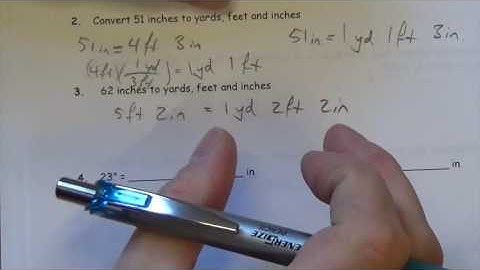 2. Convert 51 inches to yards, feet and inches
51in = 4ft 3in 51in = 1yd 1ft 3in
(4ft)(1yd/3ft) = 1yd 1ft
3. 62 inches to yards, feet and inches
5ft 2in = 1yd 2ft 2in
4. 23" = in in
ENERGIZE